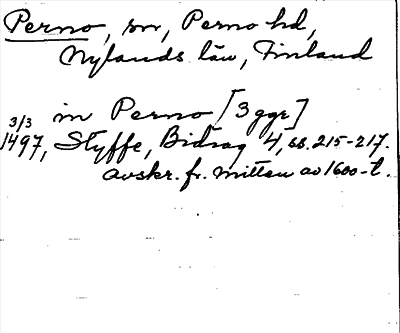 Perno, sn, Perno hd,
Nylands län, Finland
in Perno [3 ggr]
3/3
1497, Styffe, Bidrag 4, ss. 215-217.
avskr. fr. mitten av 1600-t.